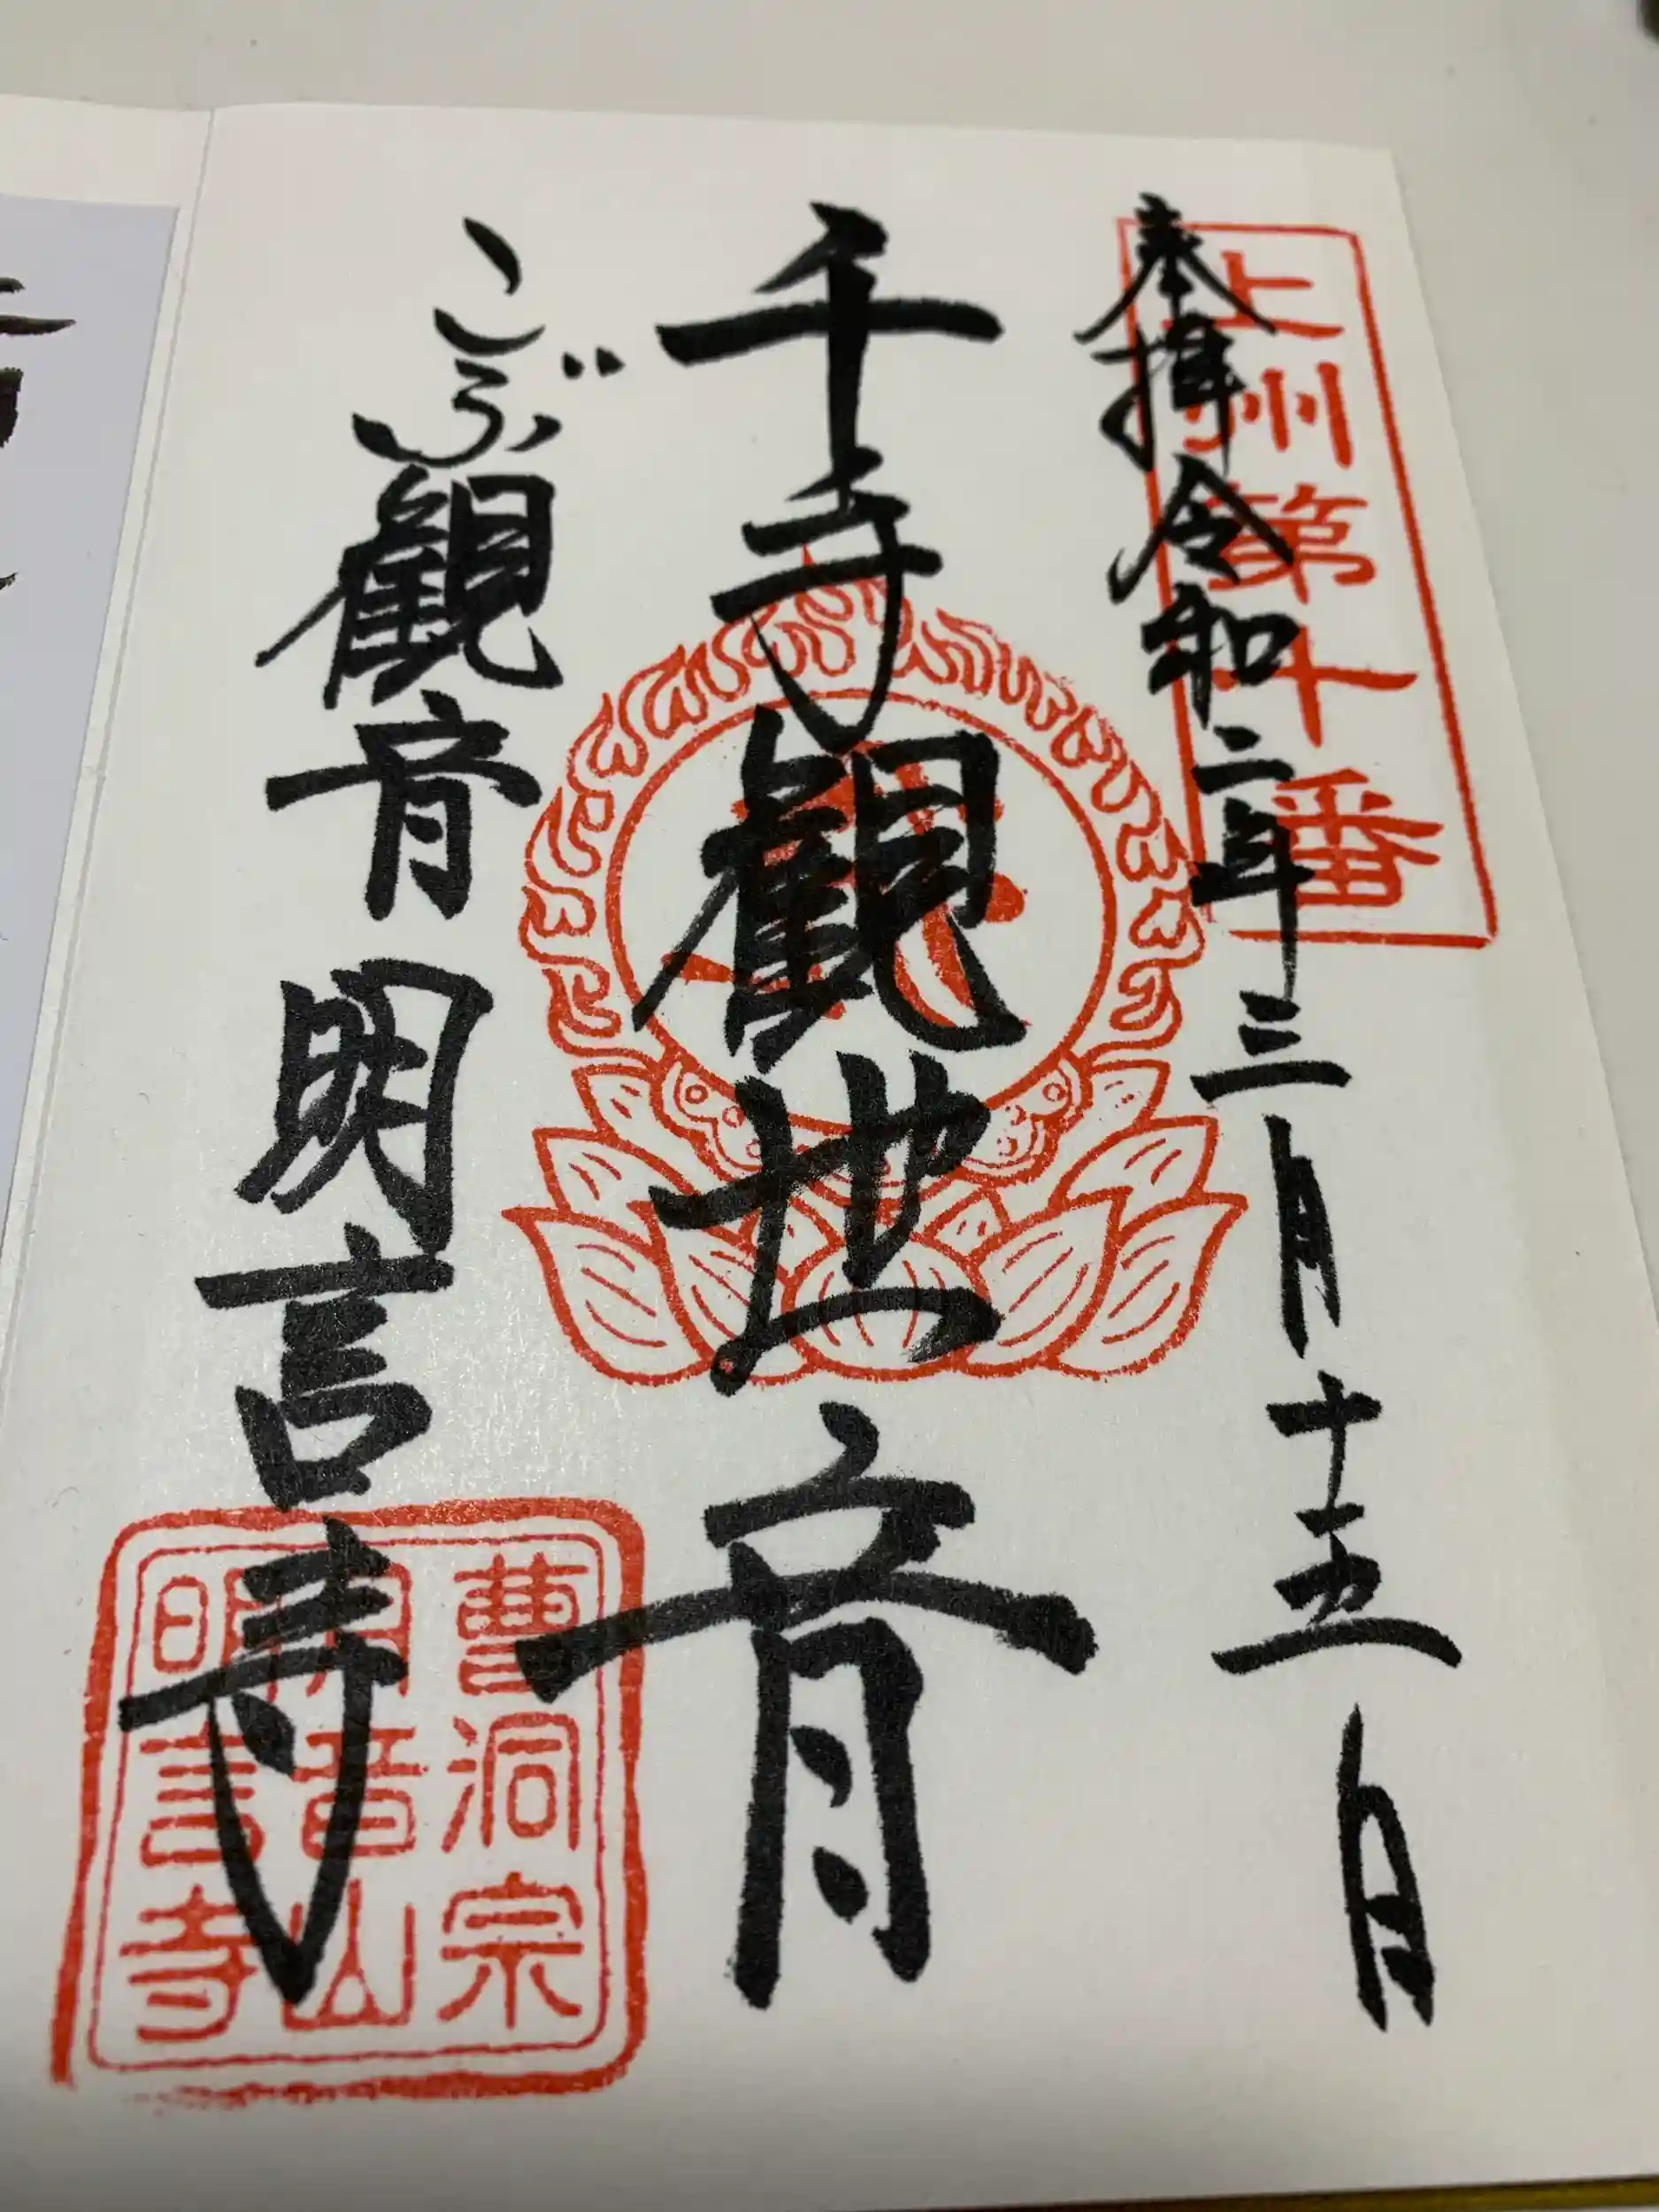 奉拝 令和二年三月十五日
上州第十番
千手観世音
こぶ観音 明言寺
曹洞宗
観音山
明言寺